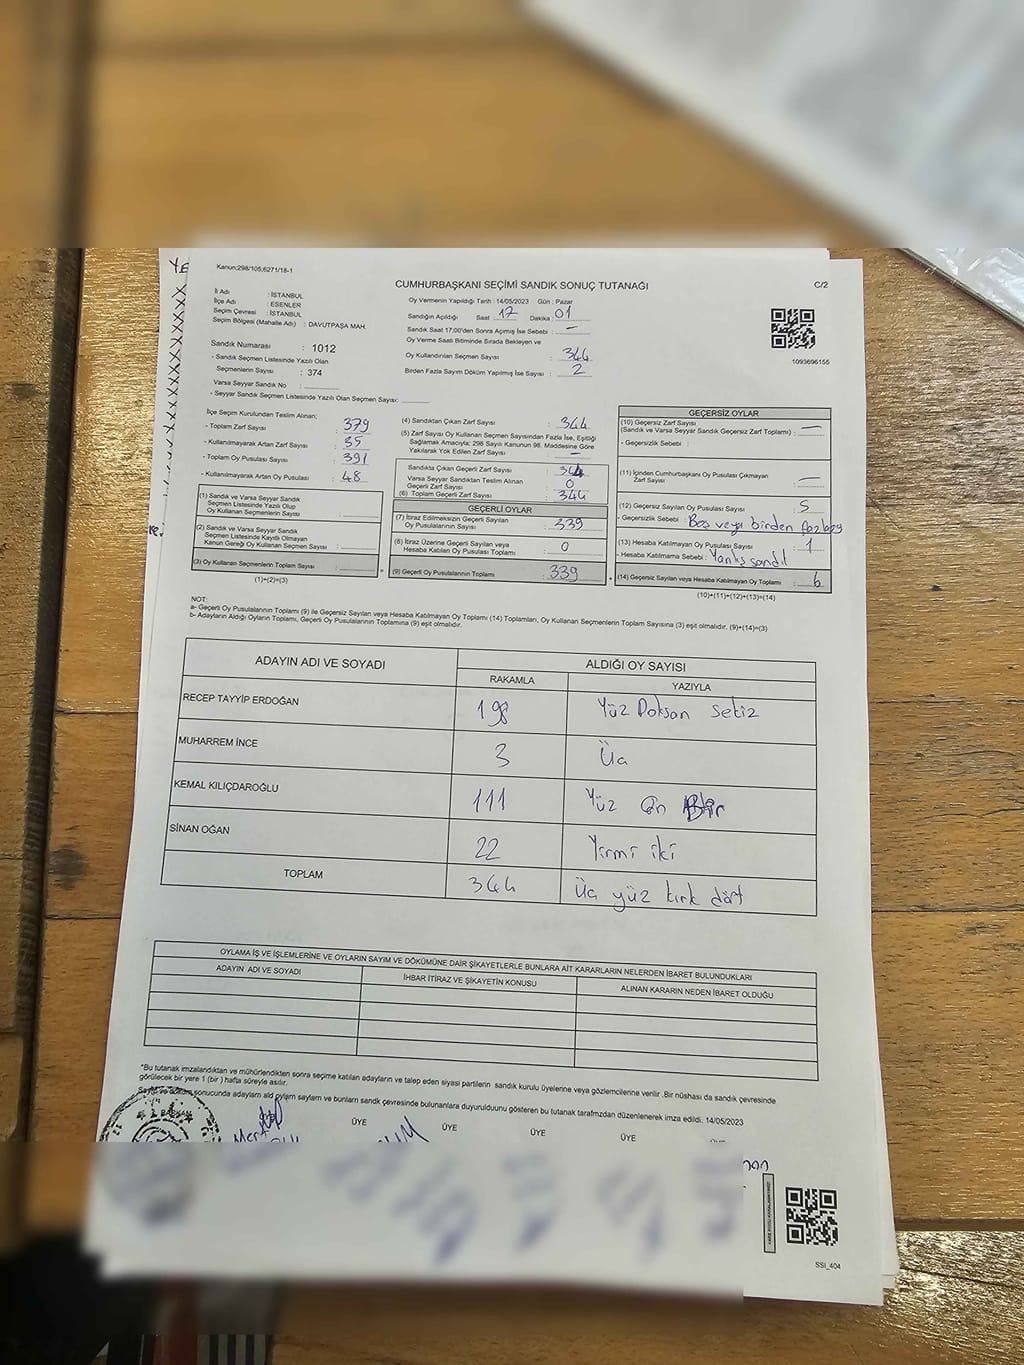 Kanun;298/105;6271/18-1
CUMHURBAŞKANI SEÇİMİ SANDIK SONUÇ TUTANAĞI
C/2
İl Adı : İSTANBUL
İlçe Adı : ESENLER
Seçim Çevresi : İSTANBUL
Seçim Bölgesi (Mahalle Adı) : DAVUTPAŞA MAH.
Sandık Numarası : 1012
- Sandık Seçmen Listesinde Yazılı Olan
Seçmenlerin Sayısı : 374
Varsa Seyyar Sandık No :
- Seyyar Sandık Seçmen Listesinde Yazılı Olan Seçmen Sayısı:
Oy Vermenin Yapıldığı Tarih : 14/05/2023 Gün : Pazar
Sandığın Açıldığı Saat : 17 Dakika : 01
Sandık Saat 17:00'den Sonra Açılmış İse Sebebi : —
Oy Verme Saati Bitiminde Sırada Bekleyen ve
Oy Kullandırılan Seçmen Sayısı : 344
Birden Fazla Sayım Döküm Yapılmış İse Sayısı : 2
1093696155
İlçe Seçim Kurulundan Teslim Alınan;
- Toplam Zarf Sayısı : 379
- Kullanılmayarak Artan Zarf Sayısı : 35
- Toplam Oy Pusulası Sayısı : 391
- Kullanılmayarak Artan Oy Pusulası : 48
(1) Sandık ve Varsa Seyyar Sandık
Seçmen Listesinde Yazılı Olup
Oy Kullanan Seçmen Sayısı :
(2) Sandık ve Varsa Seyyar Sandık
Seçmen Listesinde Kayıtlı Olmayan
Kanun Gereği Oy Kullanan Seçmen Sayısı :
(3) Oy Kullanan Seçmenlerin Toplam Sayısı :
(1)+(2)=(3)
(4) Sandıktan Çıkan Zarf Sayısı : 344
(5) Zarf Sayısı Oy Kullanan Seçmen Sayısından Fazla İse, Eşitliği
Sağlamak Amacıyla; 298 Sayılı Kanunun 98. Maddesine Göre
Yakılarak Yok Edilen Zarf Sayısı : —
Sandıkta Çıkan Geçerli Zarf Sayısı : 344
Varsa Seyyar Sandıktan Teslim Alınan
Geçerli Zarf Sayısı : 0
(6) Toplam Geçerli Zarf Sayısı : 344
GEÇERLİ OYLAR
(7) İtiraz Edilmeksizin Geçerli Sayılan
Oy Pusulalarının Sayısı : 339
(8) İtiraz Üzerine Geçerli Sayılan veya
Hesaba Katılan Oy Pusulası Toplamı : 0
(9) Geçerli Oy Pusulalarının Toplamı : 339
GEÇERSİZ OYLAR
(10) Geçersiz Zarf Sayısı
(Sandık ve Varsa Seyyar Sandık Geçersiz Zarf Toplamı) : —
- Geçersizlik Sebebi :
(11) İçinden Cumhurbaşkanı Oy Pusulası Çıkmayan
Zarf Sayısı : —
(12) Geçersiz Sayılan Oy Pusulası Sayısı : 5
- Geçersizlik Sebebi : Boş veya birden fazla oy
(13) Hesaba Katılmayan Oy Pusulası Sayısı : 1
- Hesaba Katılmama Sebebi : Yanlış sandık
(14) Geçersiz Sayılan veya Hesaba Katılmayan Oy Toplamı : 6
(10)+(11)+(12)+(13)=(14)
NOT:
a- Geçerli Oy Pusulaların Toplamı (9) ile Geçersiz Sayılan veya Hesaba Katılmayan Oy Toplamı (14) Toplamları, Oy Kullanan Seçmenlerin Toplam Sayısına (3) eşit olmalıdır. (9)+(14)=(3)
b- Adayların Aldığı Oyların Toplamı, Geçerli Oy Pusulalarının Toplamına (9) eşit olmalıdır.
ADAYIN ADI VE SOYADI ALDIĞI OY SAYISI
RAKAMLA YAZIYLA
RECEP TAYYİP ERDOĞAN 198 Yüz Doksan Sekiz
MUHARREM İNCE 3 Üç
KEMAL KILIÇDAROĞLU 111 Yüz On Bir
SİNAN OĞAN 22 Yirmi iki
TOPLAM 344 Üç yüz kırk dört
OYLAMA İŞ VE İŞLEMLERİNE VE OYLARIN SAYIM VE DÖKÜMÜNE DAİR ŞİKAYETLERLE BUNLARA AİT KARARLARIN NELERDEN İBARET BULUNDUKLARI
ADAYIN ADI VE SOYADI İHBAR İTİRAZ VE ŞİKAYETİN KONUSU ALINAN KARARIN NEDEN İBARET OLDUĞU
"Bu tutanak imzalandıktan ve mühürlendikten sonra seçime katılan adayların ve talep eden siyasi partilerin sandık kurulu üyelerine veya gözlemcilerine verilir .Bir nüshası da sandık çevresinde
görülecek bir yere 1 (bir ) hafta süreyle asılır.
sonucunda adayların ald oyların sayların ve bunların sandk çevresinde bulunanlara duyurulduunu gösteren bu tutanak tarafmzdan düzenlenerek imza edildi. 14/05/2023
BAŞKAN ÜYE ÜYE ÜYE ÜYE
SSI_404